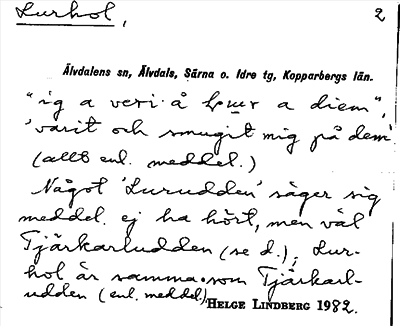 Lurhol,
2
Älvdalens sn, Älvdals, Särna o. Idre tg, Kopparbergs län.
"ig a veri å lpuɯr a diem",
'varit och smugit mig på dem'
(allt enl. meddel.)
Något 'Lurudden' säger sig
meddel. ej ha hört, men väl
Tjärkarludden (se d.); Lur-
hol är samma som Tjärkarl-
udden (enl. meddel.)
HELGE LINDBERG 1982.